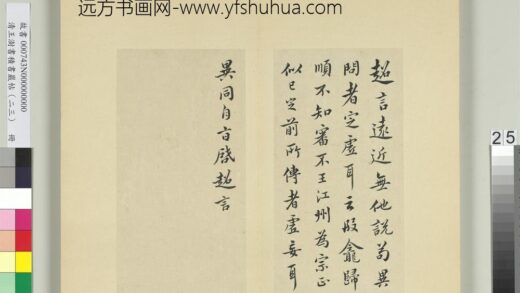 远方书画网-www.yfshuhua.com
超言遠近無他說苟異
問者定虛耳云殷龕歸
順不知審不王江州為宗正
似已定前所傳者虛妄耳
異同自當啓超言
故書 000743N00000000
清王澍書積書巖帖(二三) 冊
25